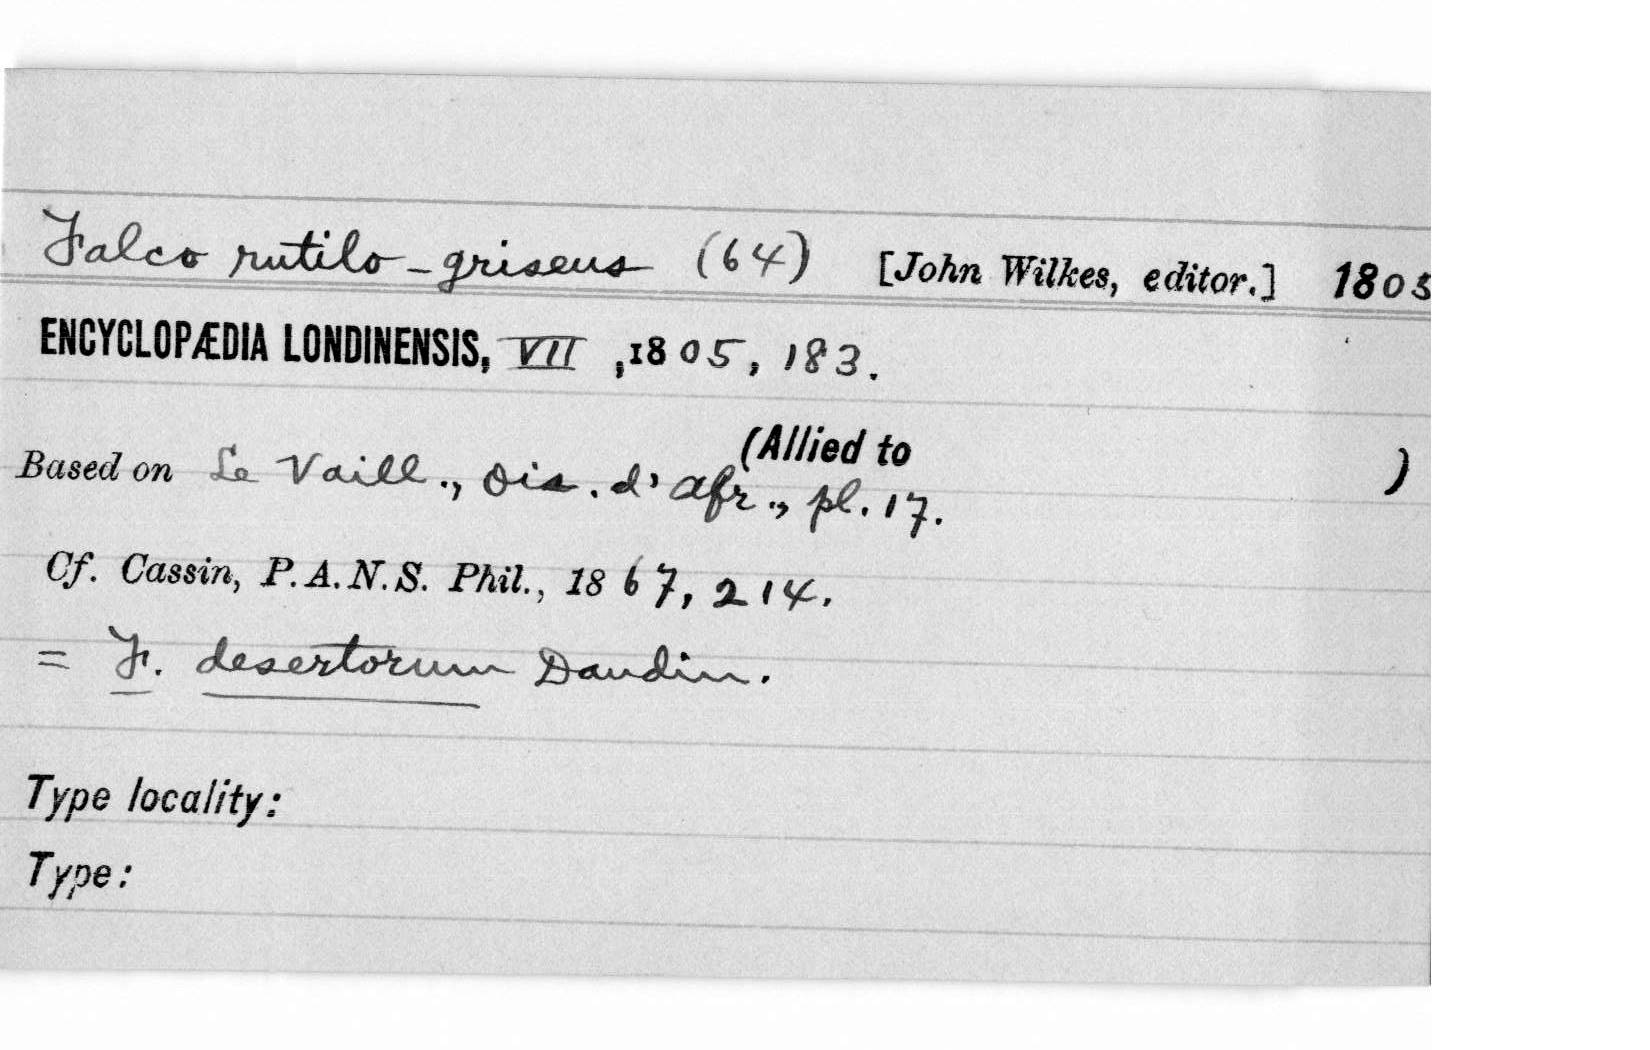 Falco rutilo-griseus (64) [John Wilkes, editor.] 1805
ENCYCLOPÆDIA LONDINENSIS, VII, 1805, 183.
(Allied to )
Based on Le Vaill., Ois. d'Afr., pl. 17.
Cf. Cassin, P. A. N. S. Phil., 1867, 214.
= F. desertorum Daudin.
Type locality:
Type: